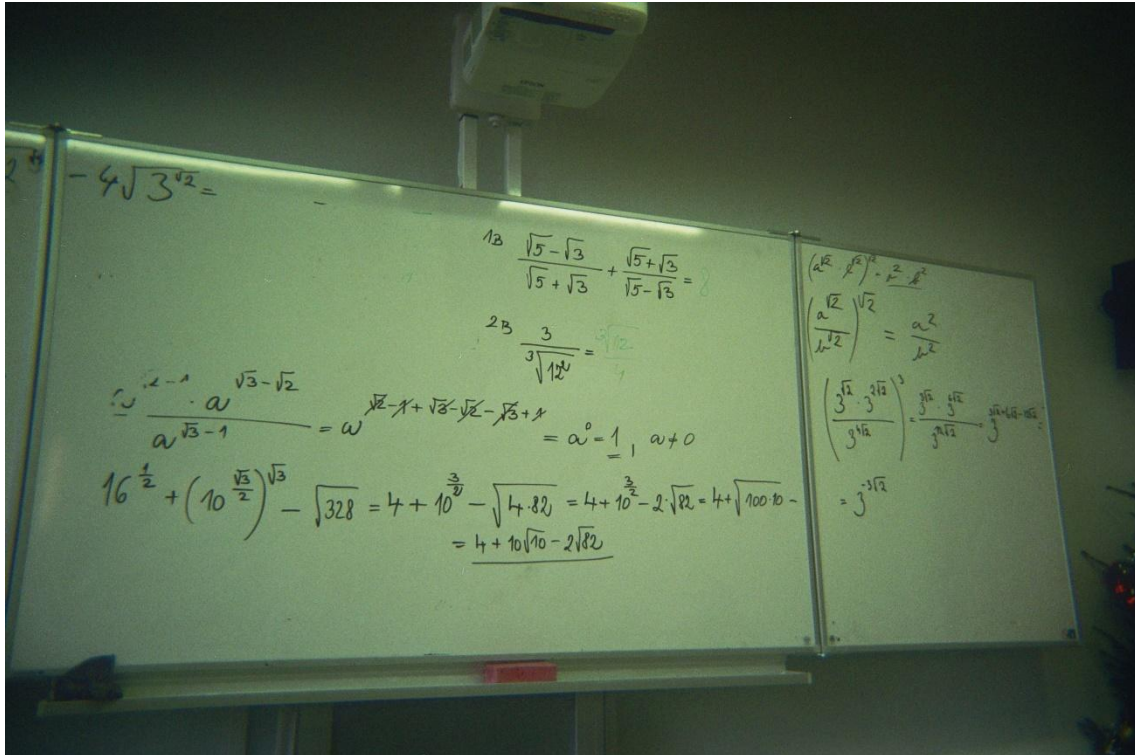 - 4√3^√2 =
1B (√5 - √3)/(√5 + √3) + (√5 + √3)/(√5 - √3) = 8
2B 3/∛(12²) =
· a^(√3-√2) / a^(√3-1) = a^(√2-1+√3-√2-√3+1) = a^0 = 1, a ≠ 0
16^(1/2) + (10^(√3/2))^√3 - √328 = 4 + 10^(3/2) - √(4·82) = 4 + 10^(3/2) - 2·√82 = 4 + √(100·10) -
= 4 + 10√10 - 2√82
(a^√2 · b^√2)^√2 = a² · b²
(a^√2 / b^√2)^√2 = a²/b²
(3^√2 · 3^(2√2) / 3^(4√2))³ = 3^(3√2) · 3^(6√2) / 3^(12√2) = 3^(3√2+6√2-12√2) =
= 3^(-3√2)